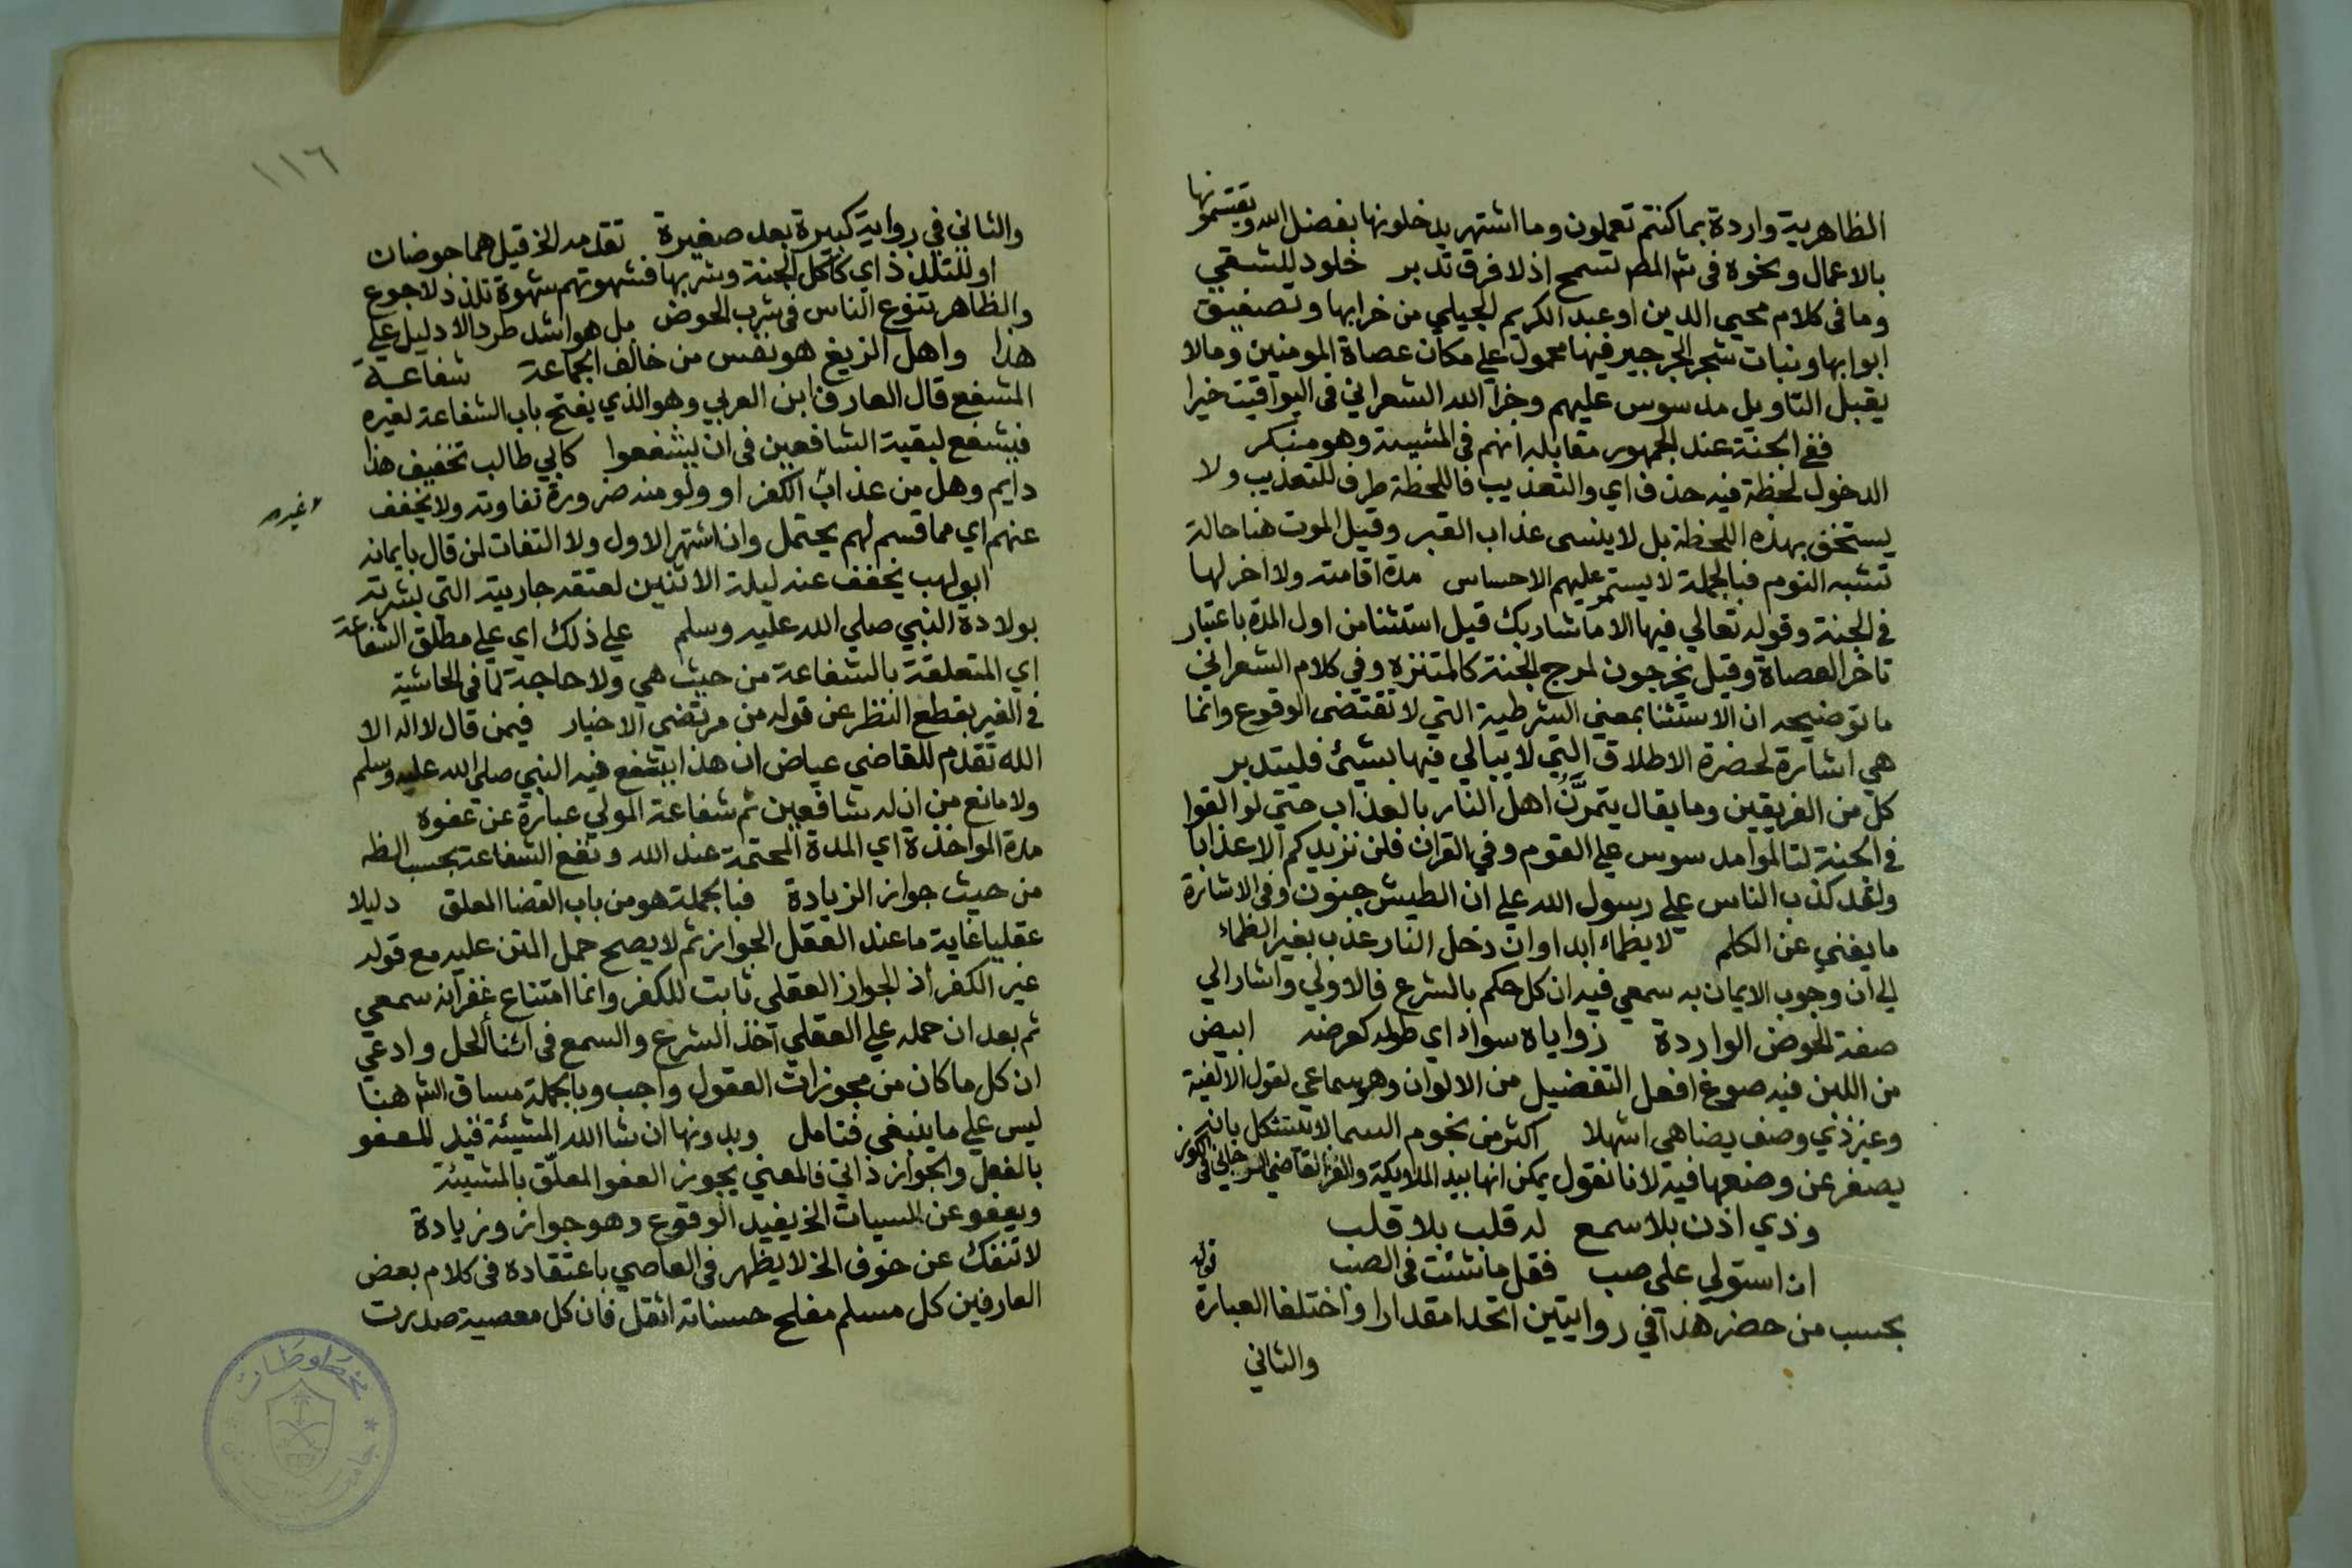 الظاهرية واردة بما كنتم تعملون وما اشتهر يدخلونها بفضل الله ويقتسمونها
بالاعمال ونحوه في شم المطر تسمح اذ لا فرق تدبر خلود للشقي
وما في كلام محيي الدين او عبد الكريم الجيلي من خرابها وتصفيق
ابوابها ونبات شجر الجرجير فيها محمول علي مكان عصاة المومنين وما لا
يقبل التاويل مدسوس عليهم وجزا الله الشعراني في اليواقيت خيرا
ففي الجنة عند الجمهور مقابله انهم في المشيئة وهو منكر
الدخول لحظة فيه حذف اي والتعذيب فاللحظة ظرف للتعذيب ولا
يستخف بهذه اللحظة بل لا ينسى عذاب القبر وقيل الموت هنا حالة
تشبه النوم فبالجملة لا يستمر عليهم الاحساس مدة اقامته ولا اخر لها
في الجنة وقوله تعالي فيها الا ما شا ربك قيل استثنا من اول المدة باعتبار
تاخر العصاة وقيل يخرجون لمرج الجنة كالمتنزه وفي كلام الشعراني
ما توضيحه ان الاستثنا بمعني الشرطية التي لا تقتضى الوقوع وانما
هي اشارة لحضرة الاطلاق التي لا يبالي فيها بشيئ فليتدبر
كل من الفريقين وما يقال يتمرن اهل النار بالعذاب حتي لو القوا
في الجنة لتالموا مدسوس علي القوم وفي القران فلن نزيدكم الا عذابا
ولقد كذب الناس علي رسول الله علي ان الطيش جنون وفي الاشارة
ما يغني عن الكلم لا يظماء ابدا وان دخل النار عذب بغير الظماء
الي ان وجوب الايمان به سمعي فيه ان كل حكم بالشرع فالاولي واشار الي
صفة الحوض الواردة زواياه سواء اي طوله كعرضه ابيض
من اللبن فيه صوغ افعل التفضيل من الالوان وهو سماعي لقول الالفية
وغير ذي وصف يضاهي اشهلا اكثر من نجوم السما لا يستشكل بانه
يصغر عن وضعها فيه لانا نقول يمكن انها بيد الملايكة والغز القاضي الارجاني في الكوز
وذي اذن بلا سمع له قلب بلا قلب
ان استولي على صب فقل ما شئت في الصب
قوله
بحسب من حضر هذا في روايتين اتحدا مقدارا واختلفا العبارة
والثاني
١١٦
والثاني في رواية كبيرة بعد صغيرة تقدمه الخ قيل هما حوضان
او للتلذذ اي كاكل الجنة وشربها فشهوتهم شهوة تلذذ لا جوع
والظاهر تنوع الناس في شرب الحوض بل هو اشد طردا لا دليل علي
هذا واهل الزيغ هو نفس من خالف الجماعة شفاعة
المشفع قال العارف ابن العربي وهو الذي يفتح باب الشفاعة لغيره
فيشفع لبقية الشافعين في ان يشفعوا كابي طالب تخفيف هذا
دايم وهل من عذاب الكفر او ولو منه ضرورة تفاوته ولا يخفف
غيره
عنهم اي مما قسم لهم يحتمل وان اشتهر الاول ولا التفات لمن قال بايمانه
ابو لهب يخفف عنه ليلة الاثنين لعتقه جاريته التي بشرته
بولادة النبي صلي الله عليه وسلم علي ذلك اي علي مطلق الشفاعة
اي المتعلقة بالشفاعة من حيث هي ولا حاجة لما في الحاشية
في الغير بقطع النظر عن قوله من مرتضي الاخيار فيمن قال لا اله الا
الله تقدم للقاضي عياض ان هذا يشفع فيه النبي صلي الله عليه وسلم
ولا مانع من ان له شافعين ثم شفاعة المولي عبارة عن عفوه
مدة المواخذة اي المدة المحتمة عند الله ونفع الشفاعة بحسب الظه
من حيث جواز الزيادة فبالجملة هو من باب القضا المعلق دليلا
عقليا غاية ما عند العقل الجواز ثم لا يصح حمل المتن عليه مع قوله
غير الكفر اذ الجواز العقلى ثابت للكفر وانما امتناع غفرانه سمعي
ثم بعد ان حمله علي العقلي آخذ الشرع والسمع في اثنا الحل وادعي
ان كل ما كان من مجوزات العقول واجب وبالجملة مساق الشم هنا
ليس علي ما ينبغي فتامل وبدونها ان شا الله المشيئة قيد للعفو
بالفعل والجواز ذاتي فالمعني يجوز العفو المعلق بالمشيئة
ويعفو عن السيات الخ يفيد الوقوع وهو جواز وزيادة
لا تنفك عن خوف الخ لا يظهر في العاصي باعتقاده في كلام بعض
العارفين كل مسلم مفلح حسناته اثقل فان كل معصية صدرت
مخطوطات